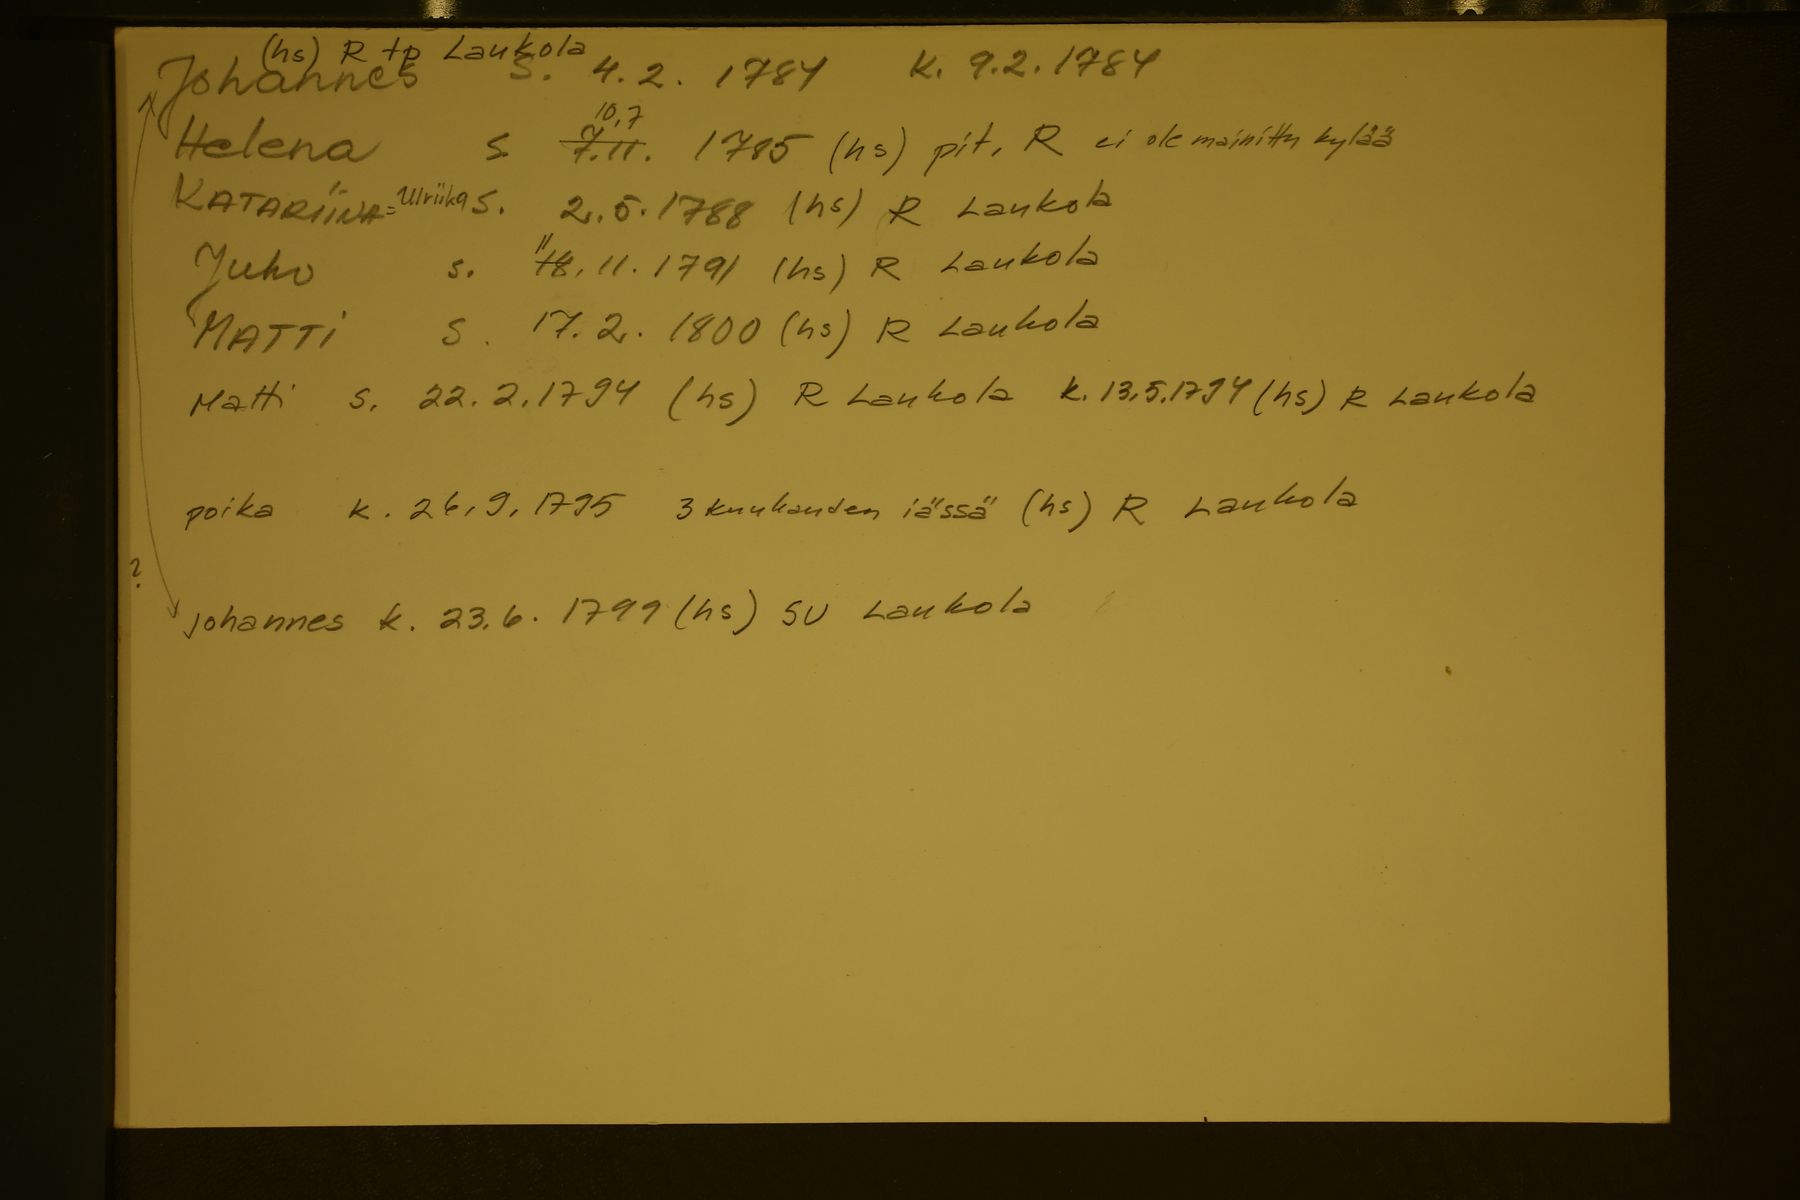 (hs) R tp Laukola
Johannes S. 4.2. 1784 K. 9.2.1784
10,7
Helena S. 7.11. 1785 (hs) pit. R ei ole mainittu kylää
KATARIINA = Ulriika S. 2.5.1788 (hs) R Laukola
11
Juho S. 18.11.1791 (hs) R Laukola
MATTI S. 17.2.1800 (hs) R Laukola
Matti S. 22.2.1794 (hs) R Laukola k.13.5.1794 (hs) R Laukola
poika k. 26.9.1795 3 kuukauden iässä (hs) R Laukola
?
Johannes k. 23.6.1799 (hs) SU Laukola